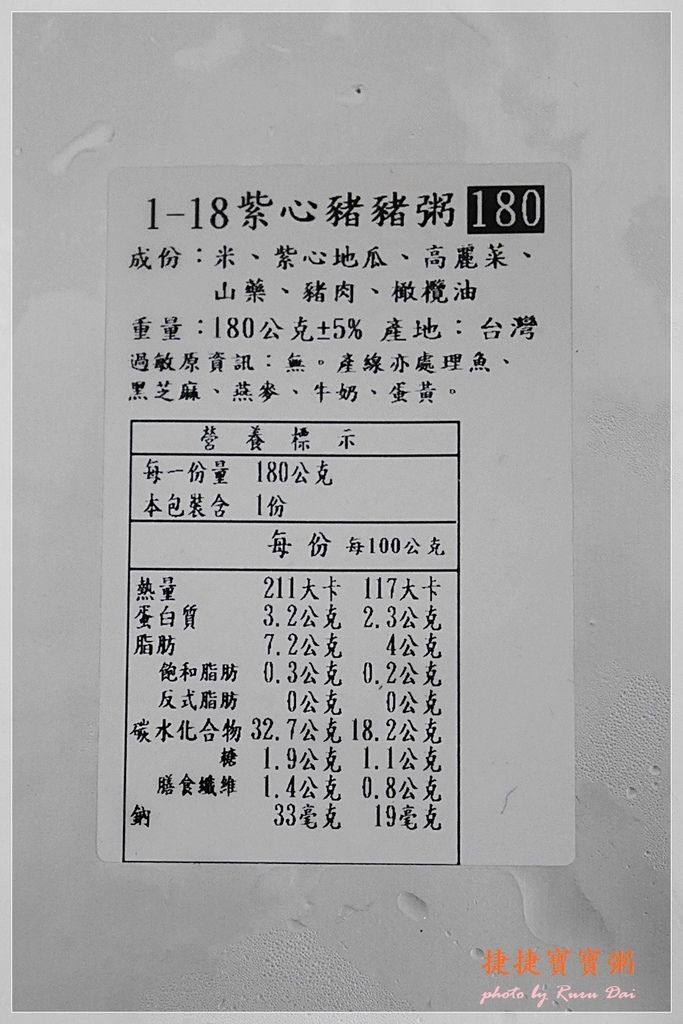 1-18紫心豬豬粥 180
成份：米、紫心地瓜、高麗菜、
山藥、豬肉、橄欖油
重量：180公克±5% 產地：台灣
過敏原資訊：無。產線亦處理魚、
黑芝麻、燕麥、牛奶、蛋黃。
營養標示
每一份量 180公克
本包裝含 1份
每份 每100公克
熱量 211大卡 117大卡
蛋白質 3.2公克 2.3公克
脂肪 7.2公克 4公克
飽和脂肪 0.3公克 0.2公克
反式脂肪 0公克 0公克
碳水化合物 32.7公克 18.2公克
糖 1.9公克 1.1公克
膳食纖維 1.4公克 0.8公克
鈉 33毫克 19毫克
捷捷寶寶粥
photo by Ruru Dai